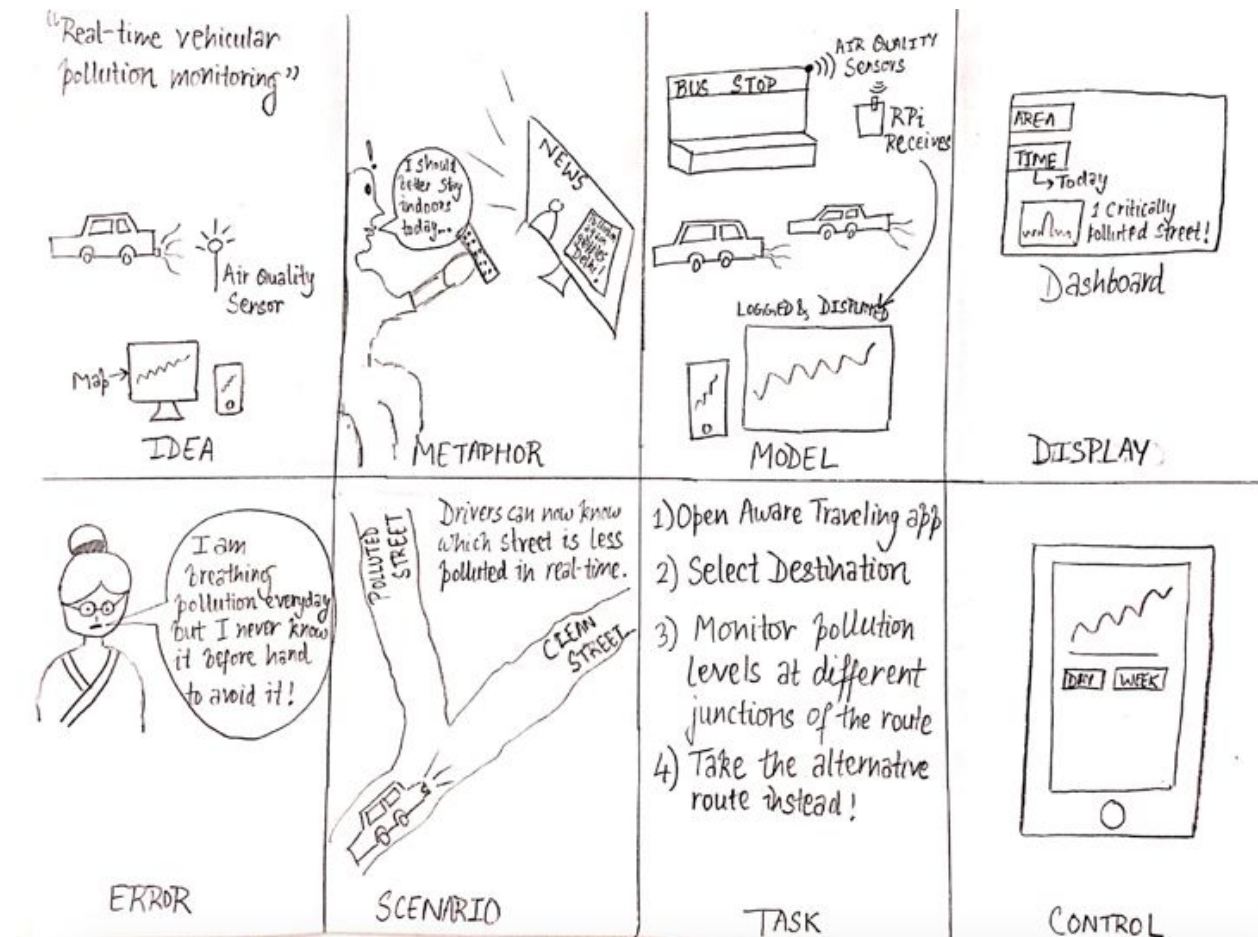 "Real-time vehicular
pollution monitoring"
Air Quality
Sensor
Map
IDEA
I should
better stay
indoors
today...
!
NEWS
Pollution
Delhi!
METAPHOR
AIR QUALITY
Sensors
BUS STOP
RPi
Receives
LOGGED & DISPLAYED
MODEL
AREA
TIME
Today
1 Critically
polluted street!
Dashboard
DISPLAY
I am
breathing
pollution everyday
but I never know
it before hand
to avoid it!
ERROR
Drivers can now know
which street is less
polluted in real-time.
POLLUTED
STREET
CLEAN
STREET
SCENARIO
1) Open Aware Traveling app
2) Select Destination
3) Monitor pollution
levels at different
junctions of the route
4) Take the alternative
route instead!
TASK
DAY WEEK
CONTROL